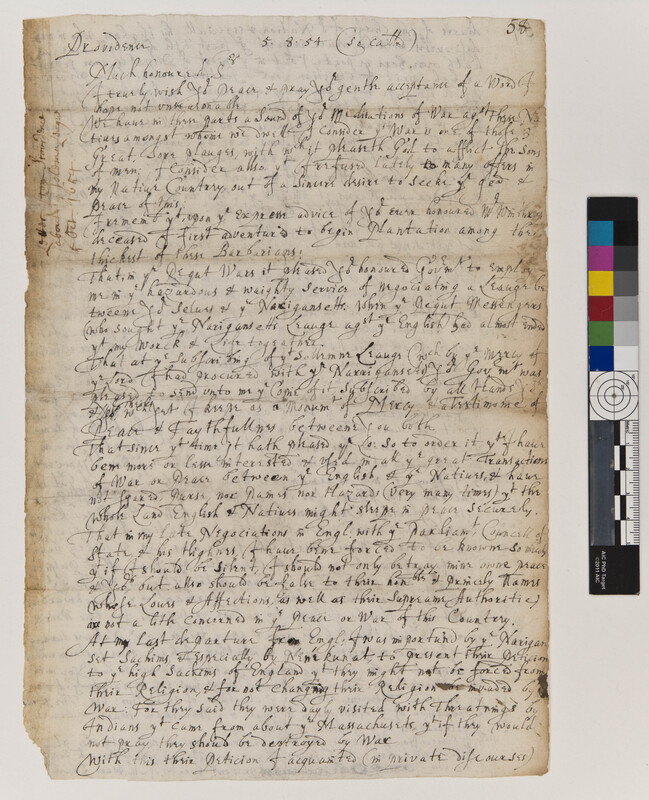 58.
Providence 5. 8. 54 (so calld)
Much honourd Srs
I truly wish yor Peace & pray yor gentle acceptance of a Word I
hope not unreasonable
We haue in these parts a Sound of yor Meditations of War agst These Na-
tiues amongst whome we dwell. I Consider yt War is one of those 3
Great, Sore plauges, with wch it pleaseth God to affect The Sons
of men: I Consider also yt I refused lately many offers in
my Natiue Country, out of a Sincere desire to Seeke ye good &
peace of This.
I remembr yt upon ye Express advice of yor euer honoured Mr Winthrop
deceased I first adventured to begin Plantation among the
thickest of these Barbarians.
That in ye Pequt Wars it pleased yor honoured Govrmt to Employ
me in ye hazardous & waighty Service of negociating a Leauge be
tweene yor Selues & ye Narigansetts: when ye Pequt Messengers
(who sought ye Narigansetts Leauge agst ye English) had almost ended
yt my Worck & Life together.
That at ye Subscribing of yt Solemne Leauge (wch by ye mercy of
ye Lord I had procured with ye Narrigansetts) yor Govrmt was
pleased to Send unto me ye Copie of it Subscribed by all Hands
wch I keepe as a Monumt of Mercy & a Testimonie of
Peace & Faythfullnes betweene you both
That since yt time It hath pleased ye Lo: so to order it yt I haue
bene more or lesse interested & Used in all ye great Transactions
of War or Peace betweene ye English & ye Natiues, & haue
not spared Purse, nor Paines nor Hazards (very many times) yt the
Whole Land English & Natiues might sleepe in peace Securely.
That in my late Negociations in Engl. with ye Parliamt, Councell of
State & his Highnes, I haue bene forced to be knowne so much
yt if I should be silent, I should not only betray mine owne peace
& yors but also should be false to their honble & princely Names
Whose Loues & Affections, as well as their Supreame Authoritie,
are not a litle Concerned in ye Peace or War of this Country.
At my last departure for Engl. I was importund by ye Narigan
set Sachims & Especially by Nenekunat, to present their Peticion
to ye high Sachims of England yt they might not be forced from
their Religion, & for not Changing their Religion be invaded by
War: For they said they were dayly visited with Threatnings by
Indians yt came from about ye Massachusets, yt if they would
not pray, they should be destroyed by War
With this their Peticion I acquainted (in private discourses)